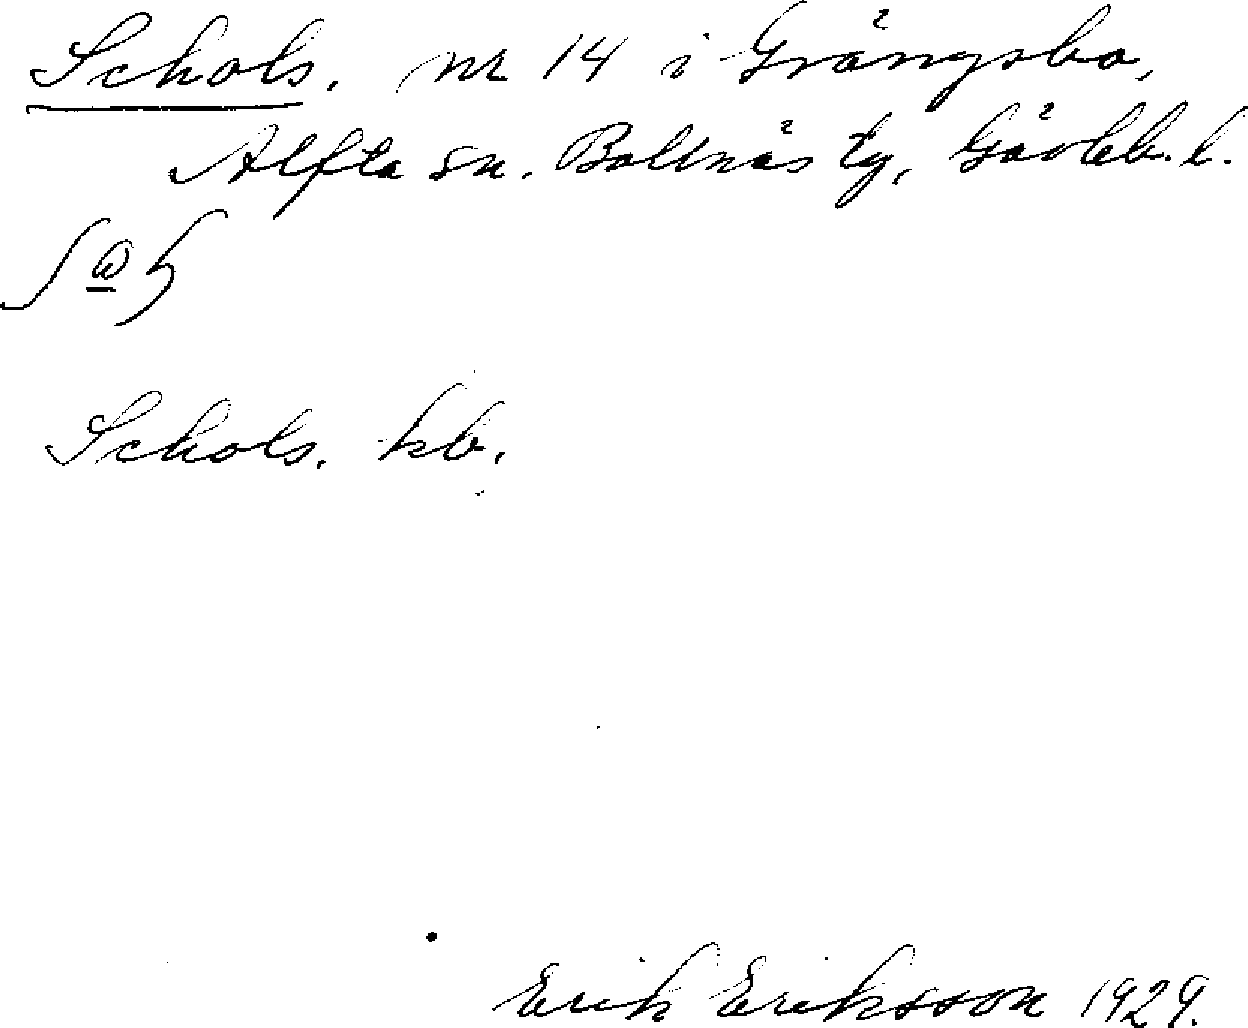 Schols. nr 14 i Grängsbo,
Alfta sn. Bollnäs tg, Gävleb. l.
Schols. kb.
Erik Eriksson 1929.